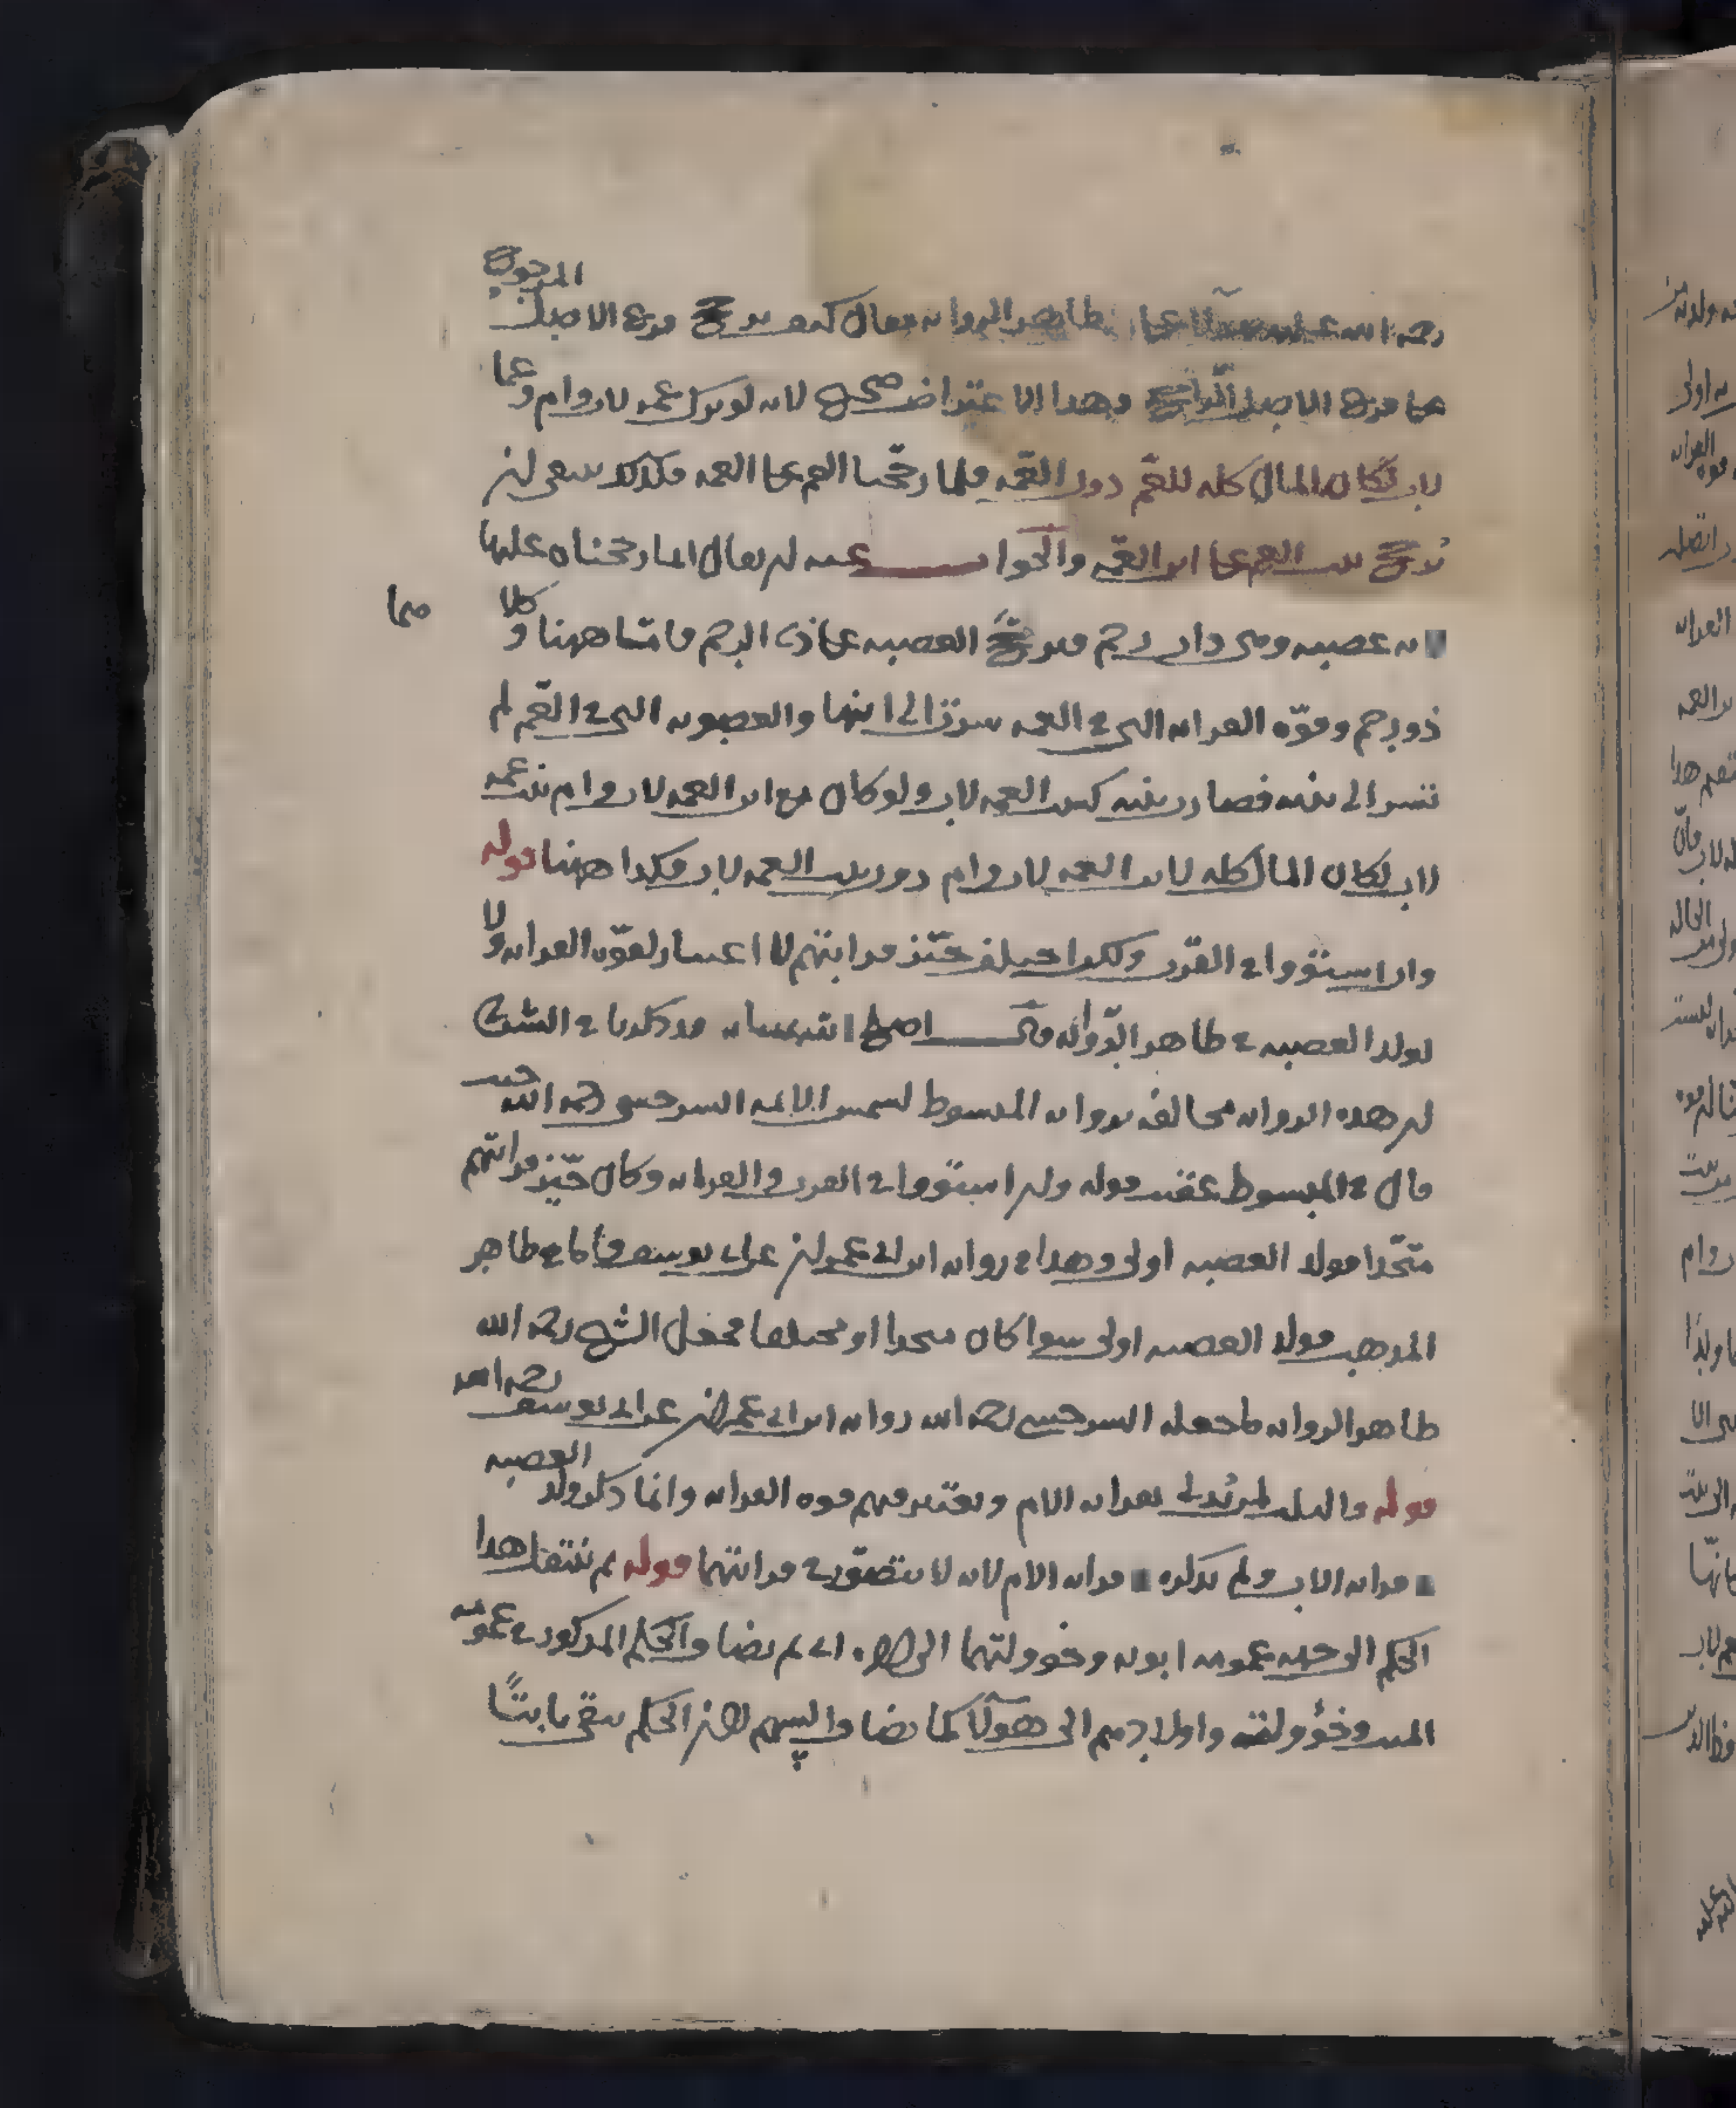 رحمه الله على ظاهر الرواية فقال كيف يرجح فرع الاصل المرجوح
على فرع الاصل الراجح وهذا الاعتراض صحيح لانه لو ترك عمه لاب وام وعما
لاب لكان المال كله للعم دون العمه فلما رجحنا العم على العمه فكذلك ينبغي ان
يرجح بنت العم على ابن العمه والجواب عنه ان يقال انما رجحناه عليها
لانه عصبه وهي ذات رحم فيرجح العصبه على ذي الرحم فاما ههنا كلاهما
ذو رحم وقوه القرابه التي في العمه سرت الى ابنها والعصوبه التي في العم لم
تسر الى بنته فصارت بنته كبنت العمه لاب ولو كان مع ابن العمه لاب وام بنت عمه
لاب لكان المال كله لابن العمه لاب وام دون بنت العمه لاب فكذا ههنا قوله
وان استووا في القرب ولكن اختلف حيز قرابتهم لا اعتبار لقوه القرابه ولا
لولد العصبه في ظاهر الرواية قال اصلح الله شانه قد ذكرنا في الشرح
ان هذه الرواية مخالفه لرواية المبسوط لشمس الائمه السرخسي رحمه الله حيث
قال في المبسوط عقيب قوله وان استووا في القرب والقرابه وكان حيز قرابتهم
متحدا فولد العصبه اولى وهذا في رواية ابن ابي عمران عن ابي يوسف فاما في ظاهر
المذهب فولد العصبه اولى سوا كان متحدا او مختلفا فجعل الشيخ رحمه الله
ظاهر الرواية ما جعله السرخسي رحمه الله رواية ابن ابي عمران عن ابي يوسف رحمه الله
قوله والثلث لمن يدلي بقرابه الام ويعتبر فيهم قوه القرابه وانما ذكر ولد العصبه
في قرابه الاب ولم يذكره في قرابه الام لانه لا يتصور في قرابتها قوله ثم ينتقل هذا
الحكم الى جهه عمومه ابويه وخوولتهما الى آخره اي ثم ايضا والحكم المذكور في عمومه
الميت وخؤولته واولادهم الى هؤلآ كما ايضا والسهم لان الحكم يبقى ثابتًا